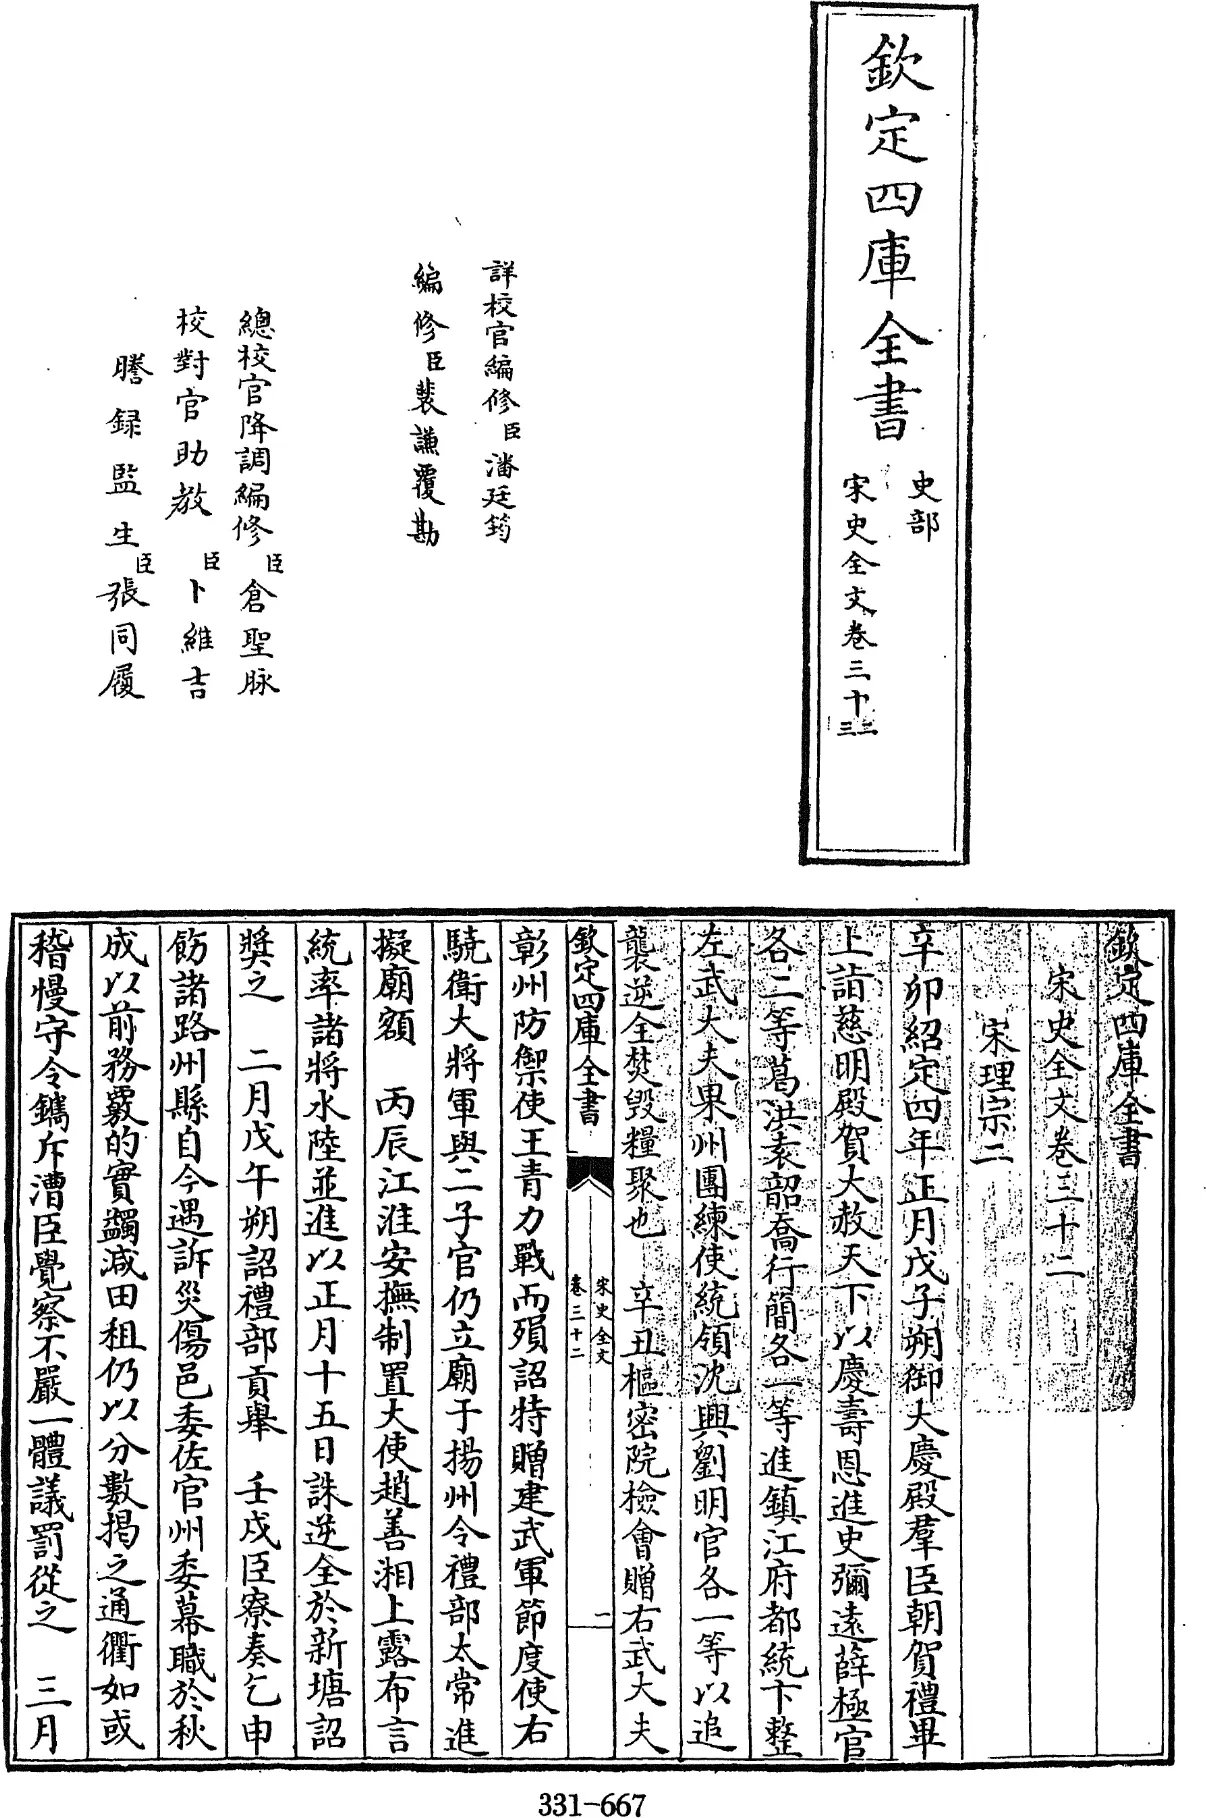 欽定四庫全書
史部
宋史全文卷三十二
三
詳校官編修臣潘廷筠
編修臣裴謙覆勘
總校官降調編修臣倉聖脉
校對官助教臣卜維吉
謄録監生臣張同履
欽定四庫全書
宋史全文卷三十二
宋理宗二
辛卯紹定四年正月戊子朔御大慶殿羣臣朝賀禮畢
上詣慈明殿賀大赦天下以慶壽恩進史彌遠薛極官
各二等葛洪袁韶喬行簡各一等進鎮江府都統卞整
左武大夫果州團練使統領沈興劉明官各一等以追
襲逆全焚毁糧聚也　辛丑樞密院檢會贈右武大夫
欽定四庫全書
宋史全文
卷三十二
一
彰州防禦使王青力戰而殞詔特贈建武軍節度使右
驍衛大將軍與二子官仍立廟于揚州令禮部太常進
擬廟額　丙辰江淮安撫制置大使趙善湘上露布言
統率諸將水陸並進以正月十五日誅逆全於新塘詔
奬之　二月戊午朔詔禮部貢舉　壬戌臣寮奏乞申
飭諸路州縣自今遇訴災傷邑委佐官州委幕職於秋
成以前務覈的實蠲减田租仍以分數揭之通衢如或
稽慢守令鐫斥漕臣覺察不嚴一體議罰從之　三月
331-667